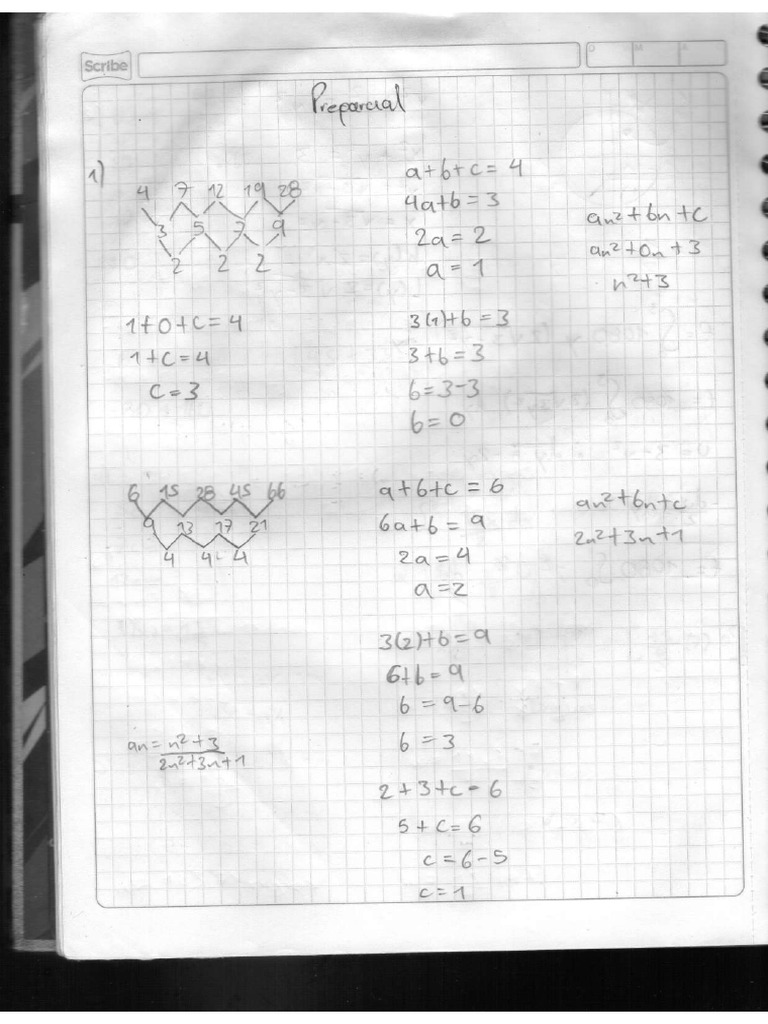 Scribe
D M A
Preparcial
1)
4 7 12 19 28
3 5 7 9
2 2 2
a+b+c= 4
4a+b = 3
2a = 2
a = 1
an²+bn+c
an²+0n+3
n²+3
1+0+c=4
1+c=4
c=3
3(1)+b = 3
3+b = 3
b=3-3
b= 0
6 15 28 45 66
9 13 17 21
4 4 4
a+b+c = 6
6a+b = 9
2a = 4
a=2
an²+bn+c
2n²+3n+1
3(2)+b=9
6+b=9
b = 9-6
b = 3
an= n²+3
2n²+3n+1
2+3+c=6
5+c=6
c=6-5
c=1